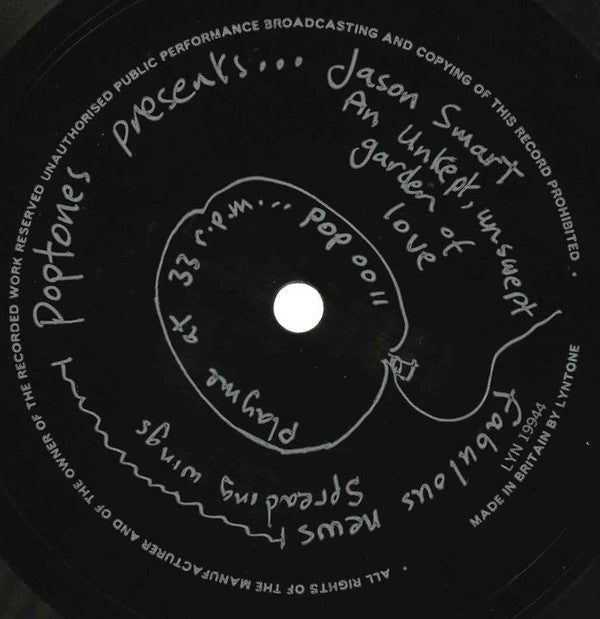 ALL RIGHTS OF THE MANUFACTURER AND OF THE OWNER OF THE RECORDED WORK RESERVED UNAUTHORISED PUBLIC PERFORMANCE BROADCASTING AND COPYING OF THIS RECORD PROHIBITED •
MADE IN BRITAIN BY LYNTONE •
LYN 19944
Poptones presents...
Jason Smart
An Unkept, unswept
garden of
love
Fabulous news!
Spreading wings
Play me at 33 r.p.m... POP 0011